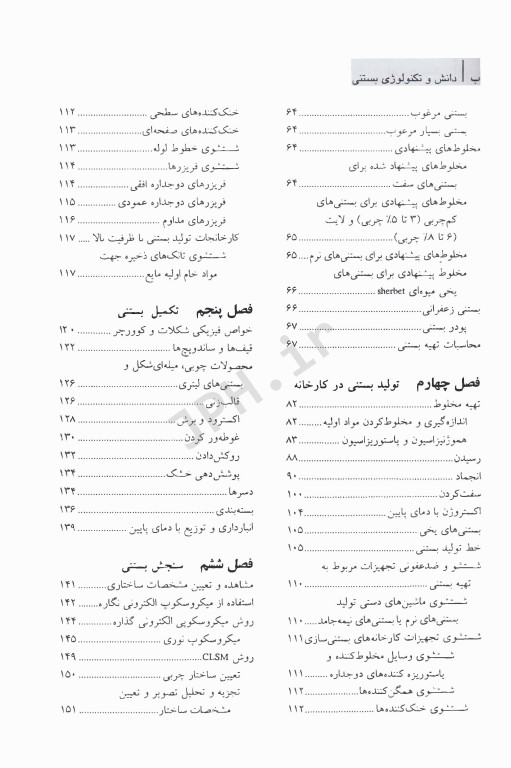 ب | دانش و تکنولوژی بستنی
بستنی مرغوب ... ۶۴
بستنی بسیار مرغوب ... ۶۴
مخلوط‌های پیشنهادی ... ۶۴
مخلوط‌های پیشنهاد شده برای
بستنی‌های سفت ... ۶۴
مخلوط‌های پیشنهادی برای بستنی‌های
کم‌چربی (۳ تا ۵٪ چربی) و لایت
(۶ تا ۸٪ چربی) ... ۶۵
مخلوط‌های پیشنهادی برای بستنی‌های نرم ... ۶۵
مخلوط پیشنهادی برای بستنی‌های
یخی میوه‌ای sherbet ... ۶۶
بستنی زعفرانی ... ۶۶
پودر بستنی ... ۶۷
محاسبات تهیه بستنی ... ۶۷
فصل چهارم تولید بستنی در کارخانه
تهیه مخلوط ... ۸۲
اندازه‌گیری و مخلوط‌کردن مواد اولیه ... ۸۲
هموژنیزاسیون و پاستوریزاسیون ... ۸۳
رسیدن ... ۸۸
انجماد ... ۹۰
سفت‌کردن ... ۱۰۰
اکستروژن با دمای پایین ... ۱۰۴
بستنی‌های یخی ... ۱۰۵
خط تولید بستنی ... ۱۰۵
شستشو و ضدعفونی تجهیزات مربوط به
تهیه بستنی ... ۱۱۰
شستشوی ماشین‌های دستی تولید
بستنی‌های نرم یا بستنی‌های نیمه‌جامد ... ۱۱۰
شستشوی تجهیزات کارخانه‌های بستنی‌سازی ۱۱۱
شستشوی وسایل مخلوط‌کننده و
پاستوریزه کننده‌های دوجداره ... ۱۱۱
شستشوی همگن‌کننده‌ها ... ۱۱۲
شستشوی خنک‌کننده‌ها ... ۱۱۲
خنک‌کننده‌های سطحی ... ۱۱۲
خنک‌کننده‌های صفحه‌ای ... ۱۱۳
شستشوی خطوط لوله ... ۱۱۳
شستشوی فریزرها ... ۱۱۴
فریزرهای دوجداره افقی ... ۱۱۴
فریزرهای دوجداره عمودی ... ۱۱۵
فریزرهای مداوم ... ۱۱۶
کارخانجات تولید بستنی با ظرفیت بالا ... ۱۱۷
شستشوی تانک‌های ذخیره جهت
مواد خام اولیه مایع ... ۱۱۷
فصل پنجم تکمیل بستنی
خواص فیزیکی شکلات و کوورچر ... ۱۲۰
قیف‌ها و ساندویچ‌ها ... ۱۲۲
محصولات چوبی، میله‌ای‌شکل و
بستنی‌های لیتری ... ۱۲۶
قالب‌زنی ... ۱۲۶
اکسترود و برش ... ۱۲۸
غوطه‌ور کردن ... ۱۳۰
روکش‌دادن ... ۱۳۲
پوشش‌دهی خشک ... ۱۳۴
دسرها ... ۱۳۴
بسته‌بندی ... ۱۳۶
انبارداری و توزیع با دمای پایین ... ۱۳۹
فصل ششم سنجش بستنی
مشاهده و تعیین مشخصات ساختاری ... ۱۴۱
استفاده از میکروسکوپ الکترونی نگاره ... ۱۴۲
روش میکروسکوپی الکترونی گذاره ... ۱۴۴
میکروسکوپ نوری ... ۱۴۵
روش CLSM ... ۱۴۹
تعیین ساختار چربی ... ۱۵۰
تجزیه و تحلیل تصویر و تعیین
مشخصات ساختار ... ۱۵۱
JPH.ir